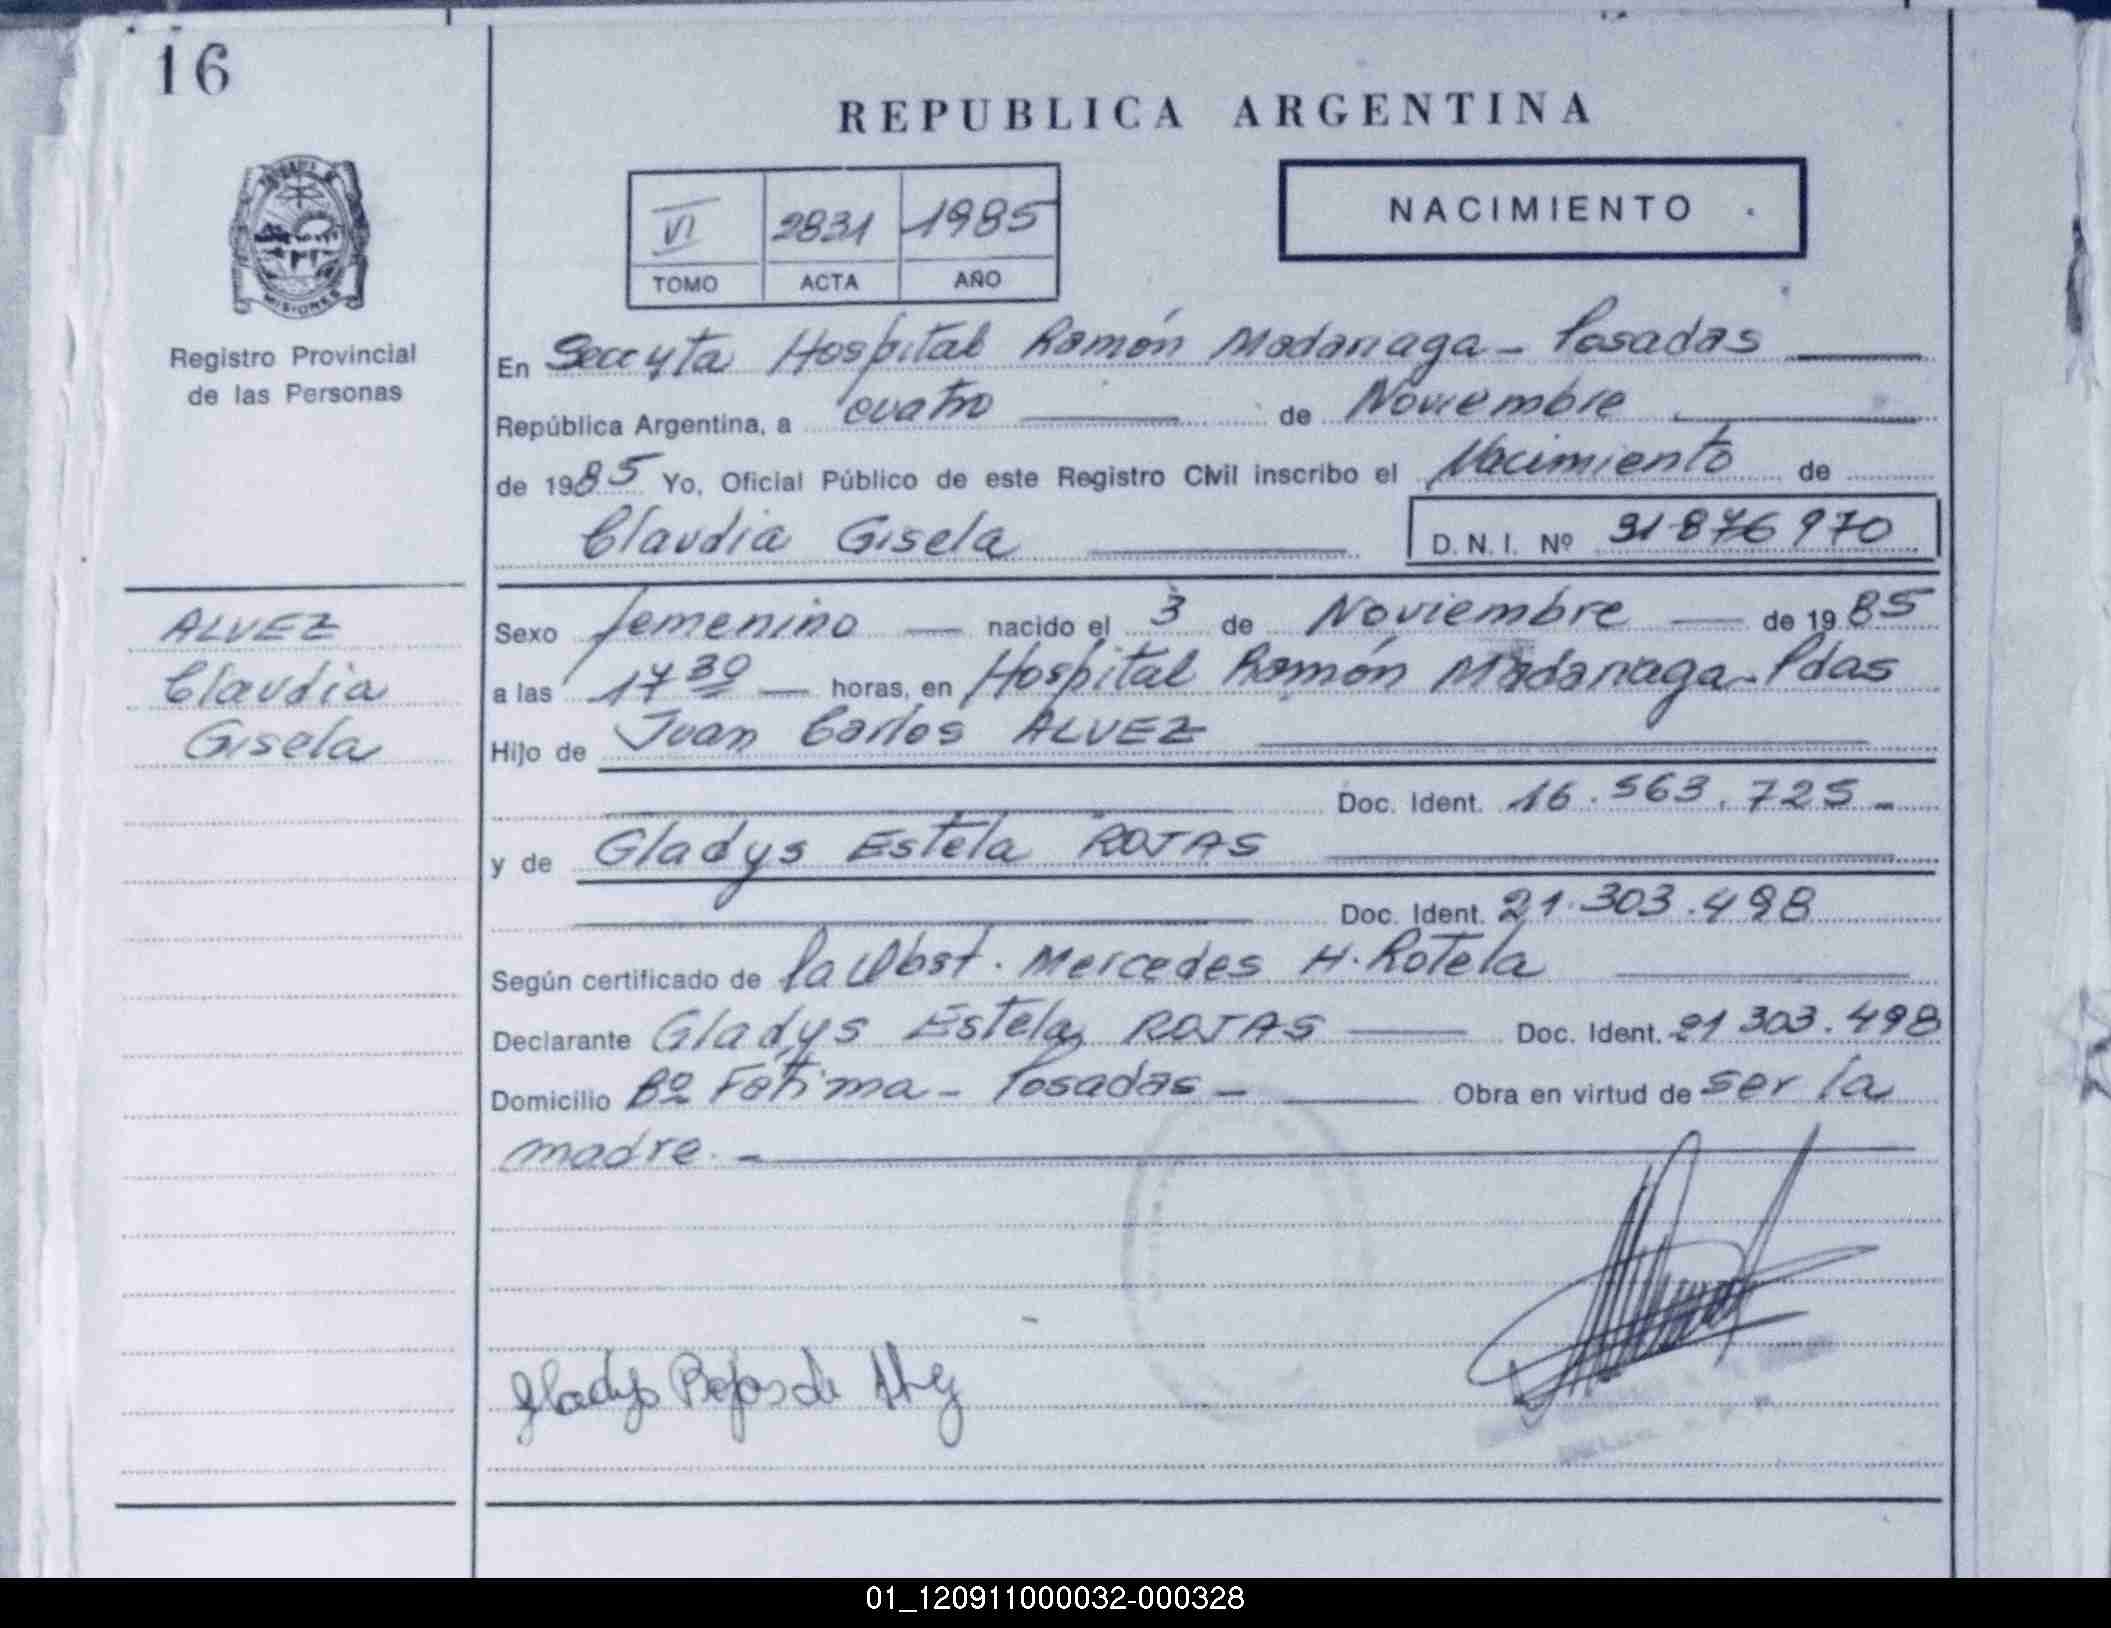 16
REPUBLICA ARGENTINA
NACIMIENTO
VI 2831 1985
TOMO ACTA AÑO
MISIONES
Registro Provincial
de las Personas
En Seccyta Hospital Ramón Madariaga - Posadas
República Argentina, a cuatro de Noviembre
de 1985 Yo, Oficial Público de este Registro Civil inscribo el Nacimiento de
Claudia Gisela D.N.I. Nº 31.876 970
ALVEZ
Claudia
Gisela
Sexo femenino nacido el 3 de Noviembre de 1985
a las 17 30 horas, en Hospital Ramón Madariaga - Pdas
Hijo de Juan Carlos ALVEZ
Doc. Ident. 16.563.725
y de Gladys Estela ROJAS
Doc. Ident. 21.303.498
Según certificado de la Obst. Mercedes H. Rotela
Declarante Gladys Estela ROJAS Doc. Ident. 21 303.498
Domicilio Bº Fátima - Posadas - Obra en virtud de ser la
madre.
Gladys Rojas de
01_120911000032-000328